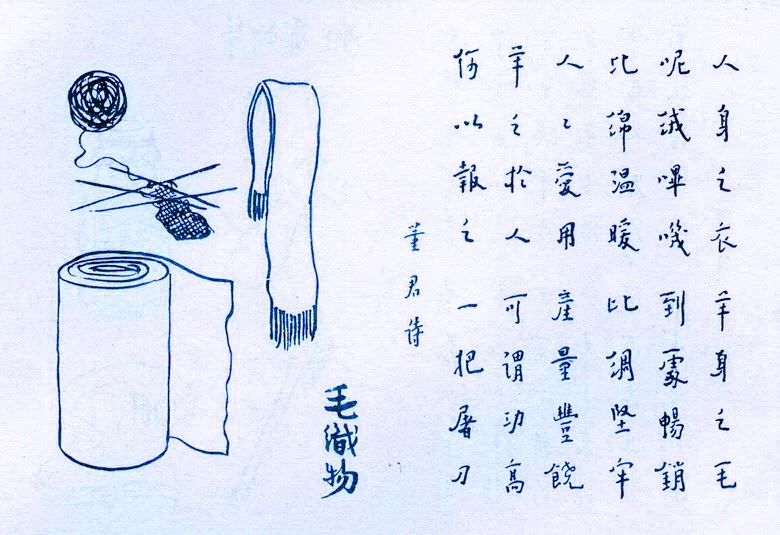 人身之衣 羊身之毛
呢絨嗶嘰 到處暢銷
比綿溫暖 比綢堅牢
人人愛用 產量豐饒
羊之於人 可謂功高
何以報之 一把屠刀
董君詩
毛織物